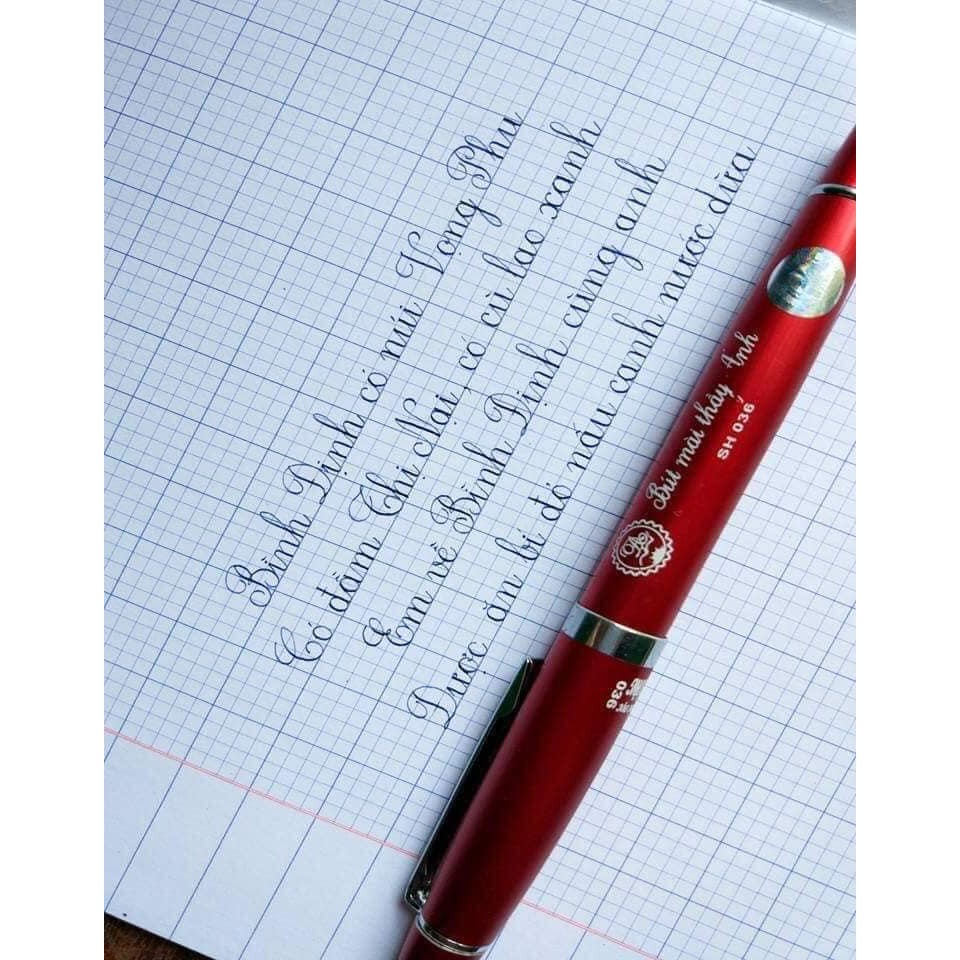 Bình Định có núi Vọng Phu
Có đầm Thị Nại, có cù lao xanh
Em về Bình Định cùng anh
Được ăn bí đỏ nấu canh nước dừa
Bút mài thầy Ánh
SH 036
036